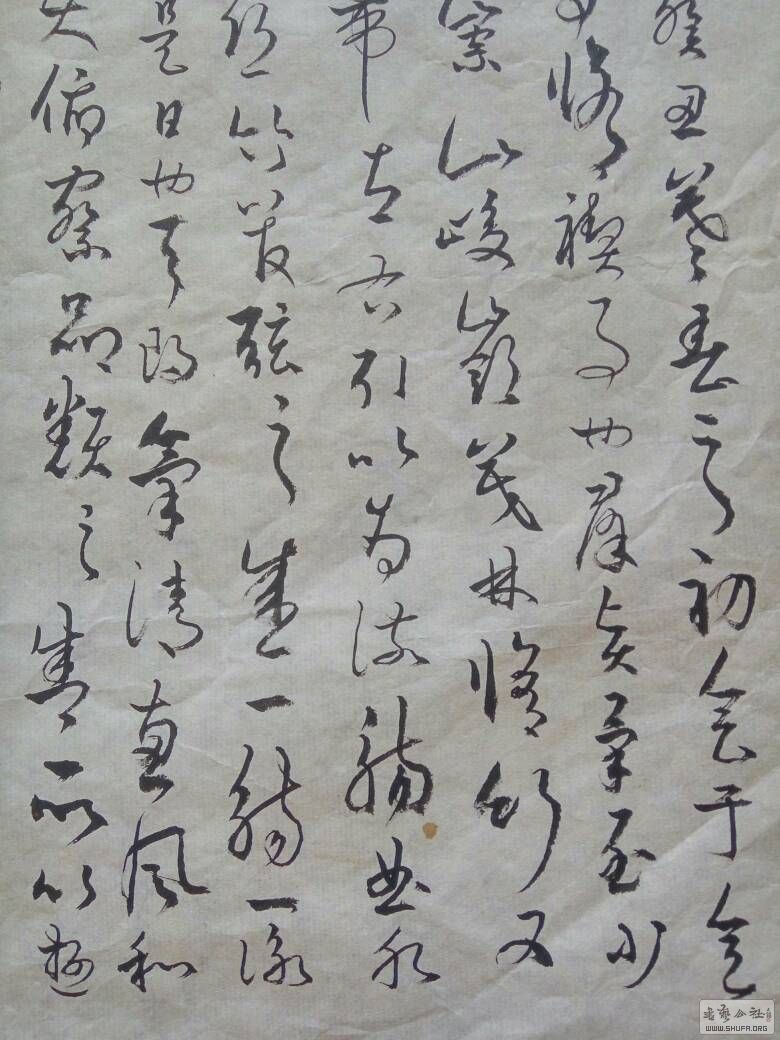 癸丑暮春之初會于會
脩禊事也群賢畢至少
崇山峻嶺茂林脩竹又
帶左右引以為流觴曲水
絲竹管弦之盛一觴一詠
是日也天朗氣清惠風和
大俯察品類之盛所以遊
書藝公社
WWW.SHUFA.ORG